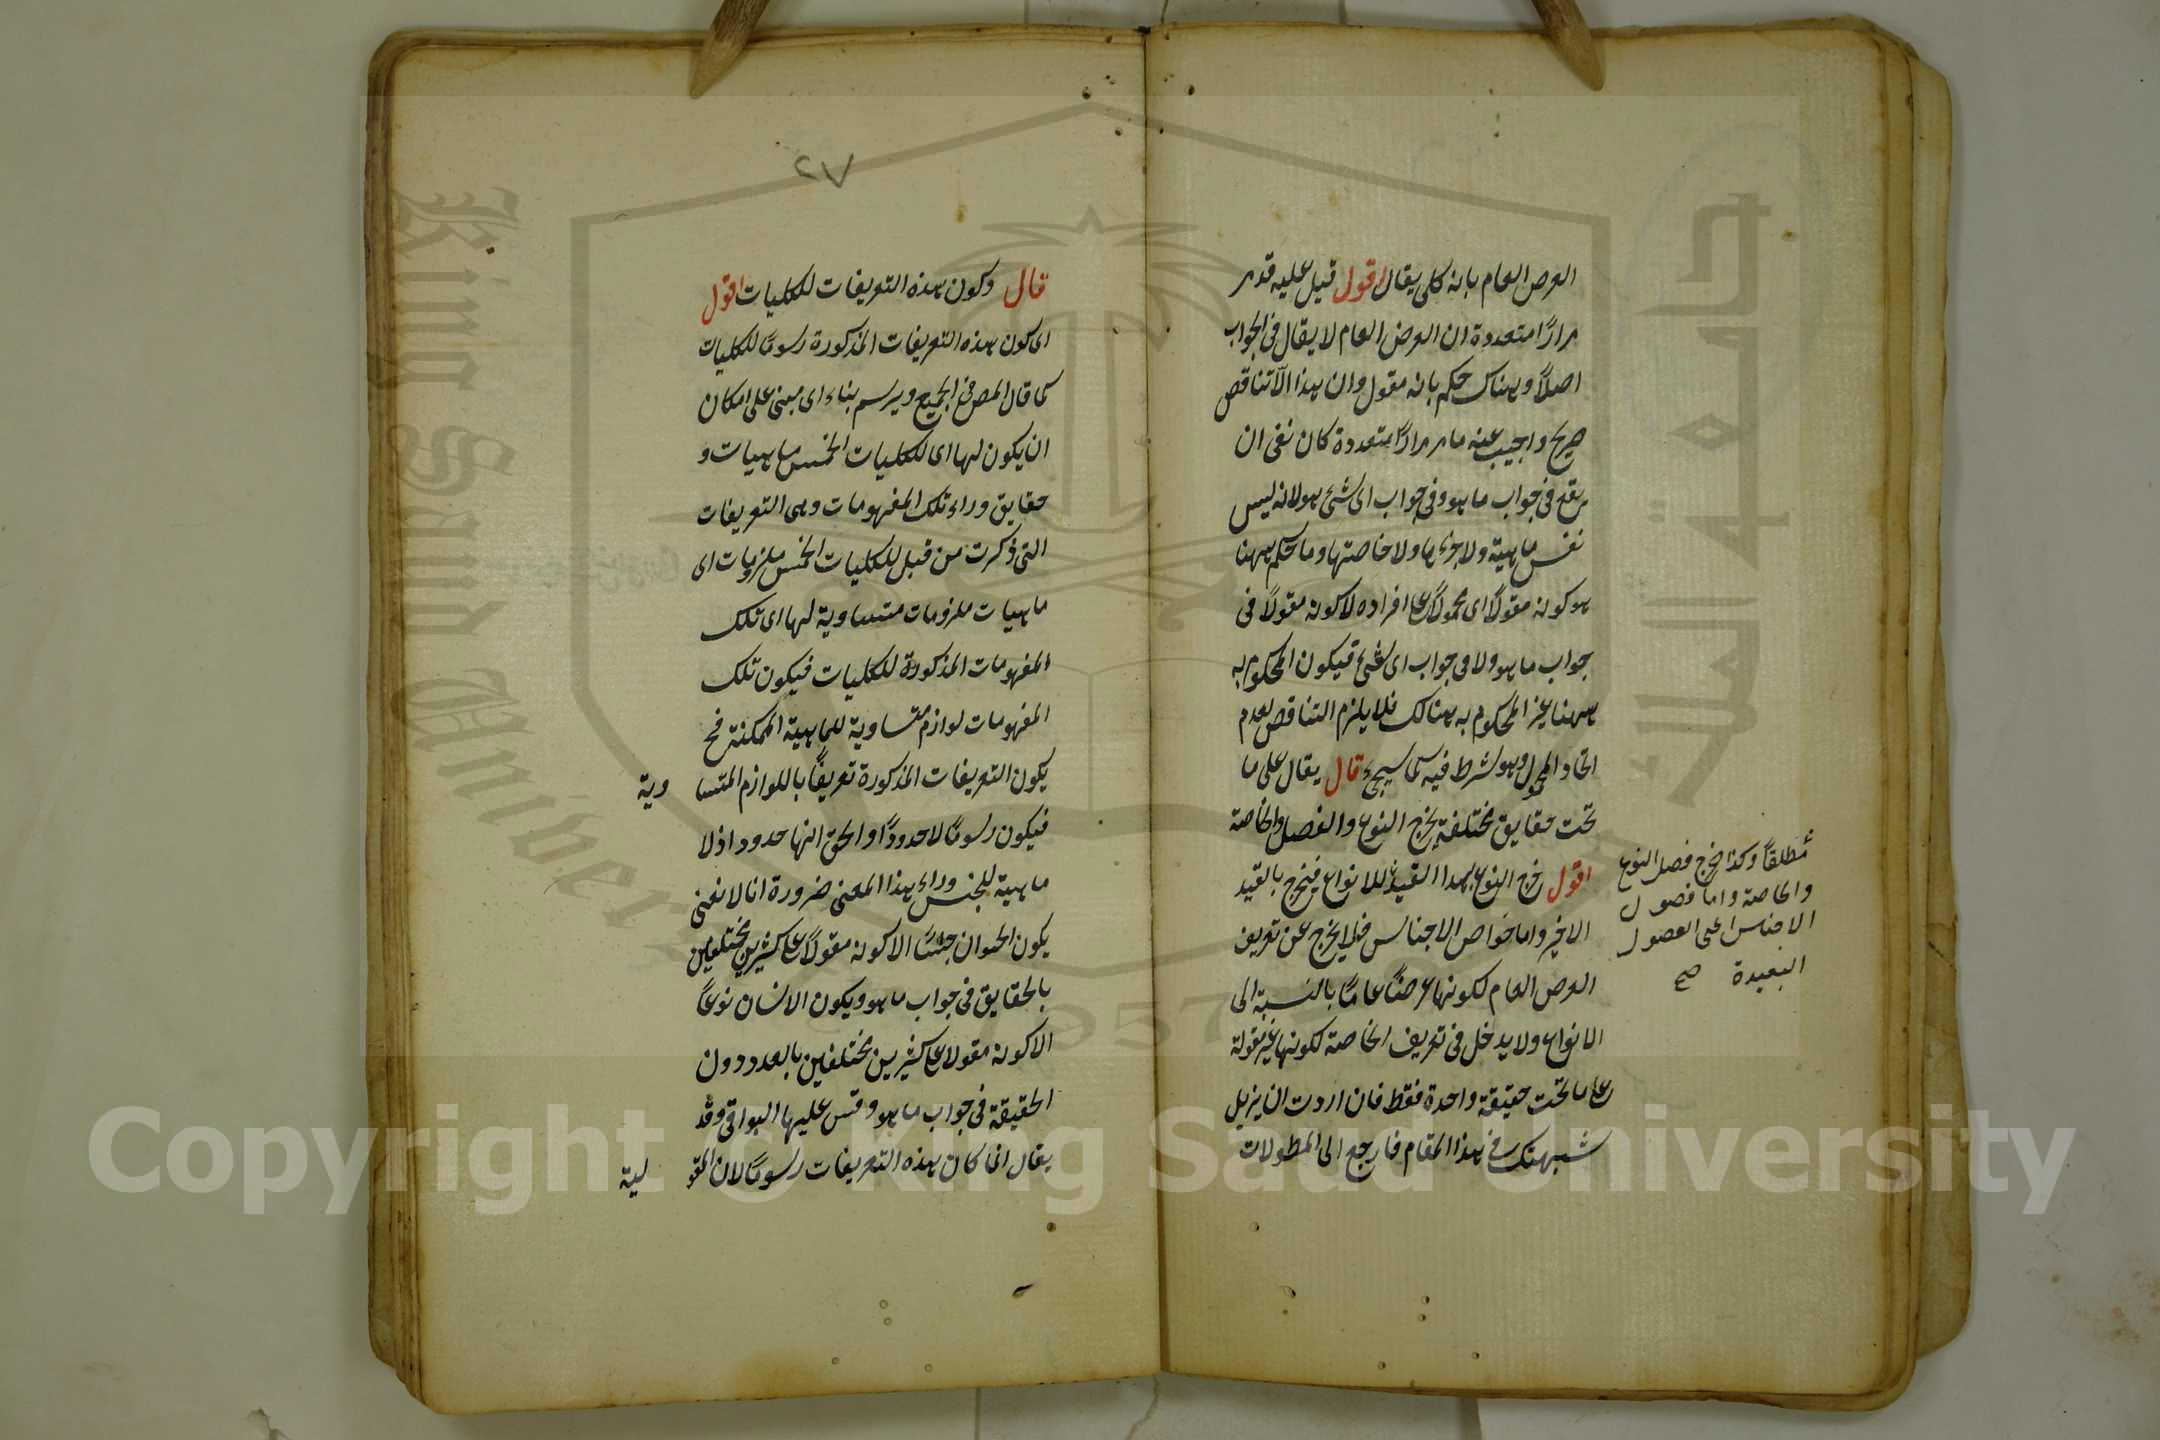 العرض العام بانه كلى يقال اقول قيل عليه قد مر
مرارًا متعددة ان العرض العام لا يقال فى الجواب
اصلاً وهناك حكم بانه مقول وان هذا الّا تناقض
صريح واجيب عنه ما مر مرارًا متعددة كان نفى ان
يقع فى جواب ما هو وفى جواب اى شئ هو لانه ليس
نفس ماهية ولا جزءها ولا خاصتها وما حكم ههنا
هو كونه مقولاً اى محمولاً على افراده لا كونه مقولاً فى
جواب ما هو ولا فى جواب اى شئ فيكون المحكوم به
ههنا غير المحكوم به هنالك فلا يلزم التناقض لعدم
اتحاد المحمول وهو شرط فيه كما سيجئ قال يقال على ما
تحت حقايق مختلفة يخرج النوع والفصل والخاصة
اقول خرج النوع بهذا القيد للانواع فيخرج بالقيد
الاخير واما خواص الاجناس فلا يخرج عن تعريف
العرض العام لكونها عرضًا عامًا بالنسبة الى
الانواع ولا يدخل فى تعريف الخاصة لكونها غير مقولة
على ما تحت حقيقة واحدة فقط فان اردت ان يزيل
شبهتك فى هذا المقام فارجع الى المطولات
مطلقًا وكذا يخرج فصل النوع
والخاصة واما فصول
الاجناس اعنى الفصول
البعيدة صح
٧٢
قال وكون هذه التعريفات للكليات اقول
اى كون هذه التعريفات المذكورة رسومًا للكليات
كما قال المص فى الجميع ويرسم بناء اى مبنى على امكان
ان يكون لها اى للكليات الخمس ماهيات و
حقايق وراء تلك المفهومات وهى التعريفات
التى ذكرت من قبل للكليات الخمس ملزومات اى
ماهيات ملزومات متساوية لها اى تلك
المفهومات المذكورة للكليات فيكون تلك
المفهومات لوازم متساوية للماهية الممكنة فح
يكون التعريفات المذكورة تعريفًا باللوازم المتسا وية
فيكون رسومًا لا حدودًا والحق انها حدود اذ لا
ماهية للجنس وراء هذا المعنى ضرورة انا لا نعنى
يكون الحيوان جنسًا الا كونه مقولاً على كثيرين مختلفين
بالحقايق فى جواب ما هو ويكون الانسان نوعًا
الا كونه مقولا على كثيرين مختلفين بالعدد دون
الحقيقة فى جواب ما هو وقس عليها البواقى وقد
يقال انما كان هذه التعريفات رسومًا لان المقو لية
Copyright © King Saud University
King Saud University
1957